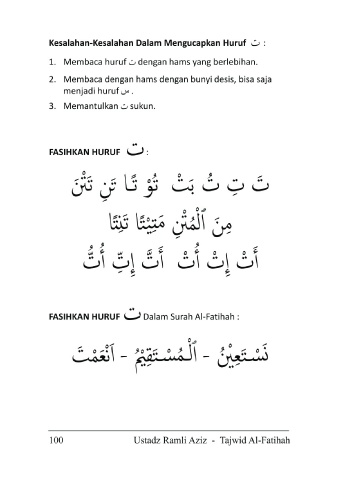 Kesalahan-Kesalahan Dalam Mengucapkan Huruf ت :
1. Membaca huruf ت dengan hams yang berlebihan.
2. Membaca dengan hams dengan bunyi desis, bisa saja
menjadi huruf س .
3. Memantulkan ت sukun.
FASIHKAN HURUF ت :
تَ تِ تُ بَتْ تُوْ تًا تَنِ تَتْنَ
مِنَ ٱلْمُتْنِ مَتِيْتًا تَنِتًا
أَتْ إِتْ أُتْ أَتَّ إِتِّ أُتُّ
FASIHKAN HURUF ت Dalam Surah Al-Fatihah :
نَسْتَعِيْنُ - ٱلْمُسْتَقِيْمُ - اَنْعَمْتَ
100 Ustadz Ramli Aziz - Tajwid Al-Fatihah